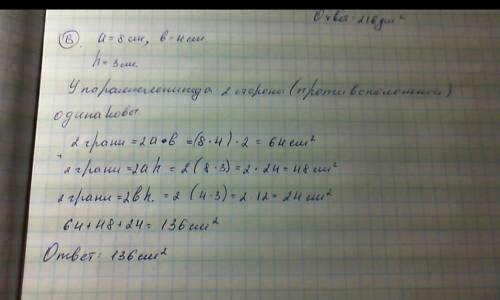 Ответ: 216 дм²
В. a = 8 см, b = 4 см
h = 3 см.
У параллелепипеда 2 стороны (противоположной)
одинаковы
2 грани = 2a·b = (8·4)·2 = 64 см²
2 грани = 2ah = 2(8·3) = 2·24 = 48 см²
2 грани = 2bh. = 2 (4·3) = 2 12 = 24 см²
64 + 48 + 24 = 136 см²
Ответ: 136 см²